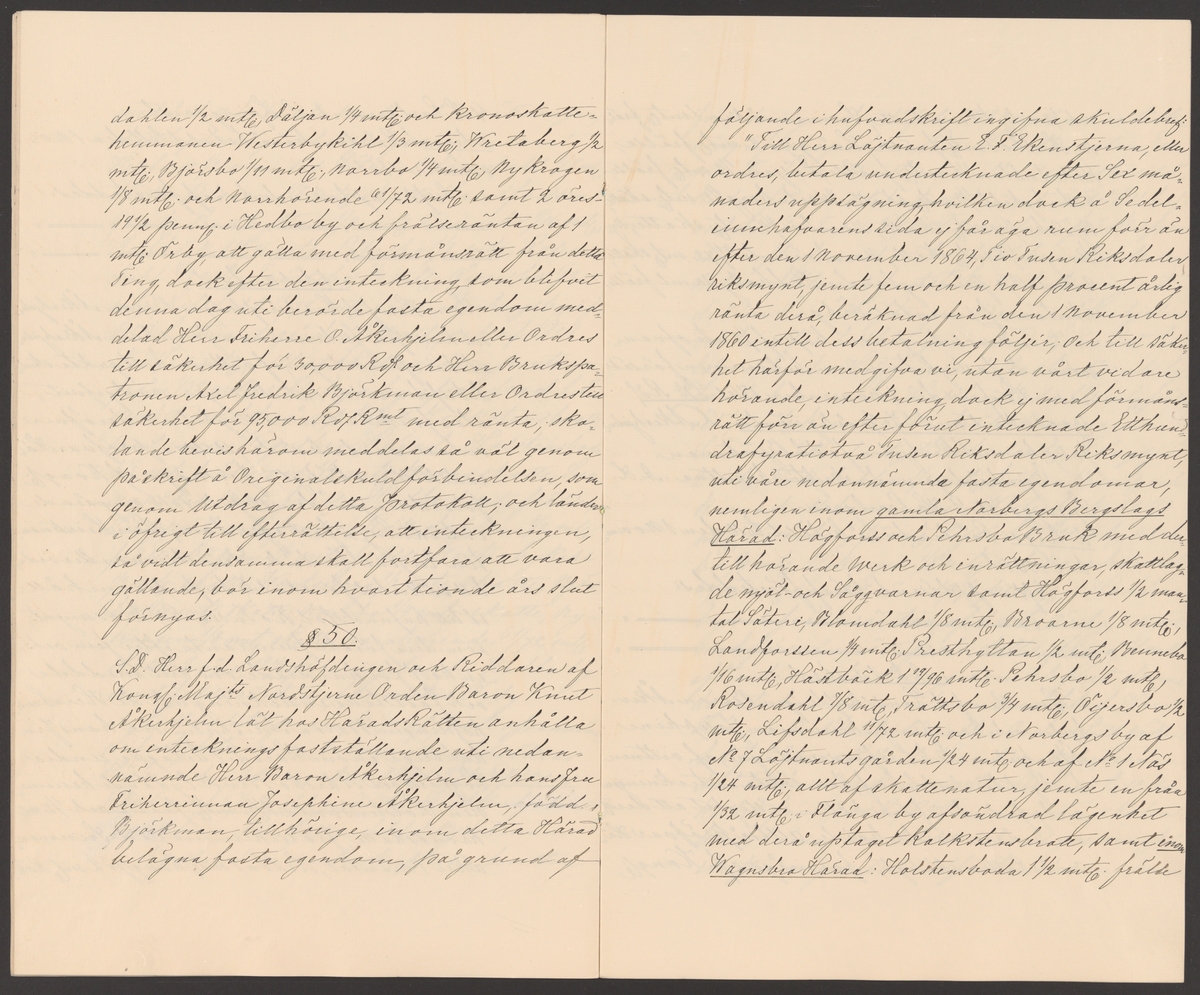 dahlen 1/2 mtl; Däljan 1/4 mtl; och Kronoskatte-
hemmanen Westerbykihl 1/3 mtl; Wretaberg 1/2
mtl; Björsbo 1/11 mtl; Norrbo 1/4 mtl, Nykrogen
1/8 mtl; och Norrhörende 61/72 mtl; samt 2 öres-
19 1/2 penng. i Hedbo by och frälseräntan af 1
mtl; Örby, att gälla med förmånsrätt från detta
Ting, dock efter den inteckning, som blefvit
denna dag uti berörde fasta egendom med-
delad Herr Friherre O. Åkerhjelm eller Ordres
till säkerhet för 30,000 Rdr och Herr Brukspa-
tronen Axel Fredrik Björkman eller Ordres till
säkerhet för 95,000 Rdr Rmt med ränta; sko-
lande bevis härom meddelas så väl genom
påskrift å Originalskuldförbindelsen, som
genom Utdrag af detta Protokoll; och länder
i öfrigt till efterrättelse, att inteckningen,
så vidt densamma skall fortfara att vara
gällande, bör inom hvart tionde års slut
förnyas.
§ 50.
S.D. Herr f.d. Landshöfdingen och Riddaren af
Kongl. Majts Nordstjerne Orden Baron Knut
Åkerhjelm lät hos HäradsRätten anhålla
om intecknings fastställande uti nedan-
nämnde Herr Baron Åkerhjelm och hans Fru
Friherrinnan Josephine Åkerhjelm, född
Björkman, tillhörige, inom detta Härad
belägna fasta egendom, på grund af
följande i hufvudskrift ingifna skuldebref:
"Till Herr Löjtnanten E. F. Ekenstjerna, eller
ordres, betala undertecknade efter Sex må-
naders uppsägning, hvilken dock å Sedel-
innehafvarens sida ej får äga rum förr än
efter den 1 November 1864, Tio Tusen Riksdaler
riksmynt, jemte fem och en half procent årlig
ränta derå, beräknad från den 1 November
1860 intill dess betalning följer; och till säker-
het härför medgifva vi, utan vårt vidare
hörande, inteckning, dock ej med förmåns-
rätt förr än efter förut intecknade Etthun-
drafyratiotvå Tusen Riksdaler Riksmynt,
uti våre nedannämnda fasta egendomar,
nemligen inom gamla Norbergs Bergslags
Härad: Högforss och Pehrsbo Bruk med der-
till hörande Werk och inrättningar, skattlag-
de mjöl- och Sågqvarnar samt Högforss 1/2 man-
tal Säteri, Blomdahl 1/8 mtl; Broarne 1/8 mtl;
Landforssen 1/4 mtl; Presthyttan 1/2 mtl; Bennebo
1/16 mtl; Hästbäck 1 19/96 mtl; Pehrsbo 1/2 mtl,
Rosendahl 7/8 mtl, Trättsbo 3/4 mtl; Öijersbo 1/2
mtl; Lifsdahl 11/72 mtl; och i Norbergs by af
No 7 Löjtnantsgården 1/24 mtl; och af No 1 Näs
1/24 mtl, allt af skattenatur, jemte en från
1/32 mtl; i Flänga by afsöndrad lägenhet
med derå uptaget Kalkstensbrott, samt inom
Wagnsbro Härad: Holstensboda 1 1/2 mtl; frälse